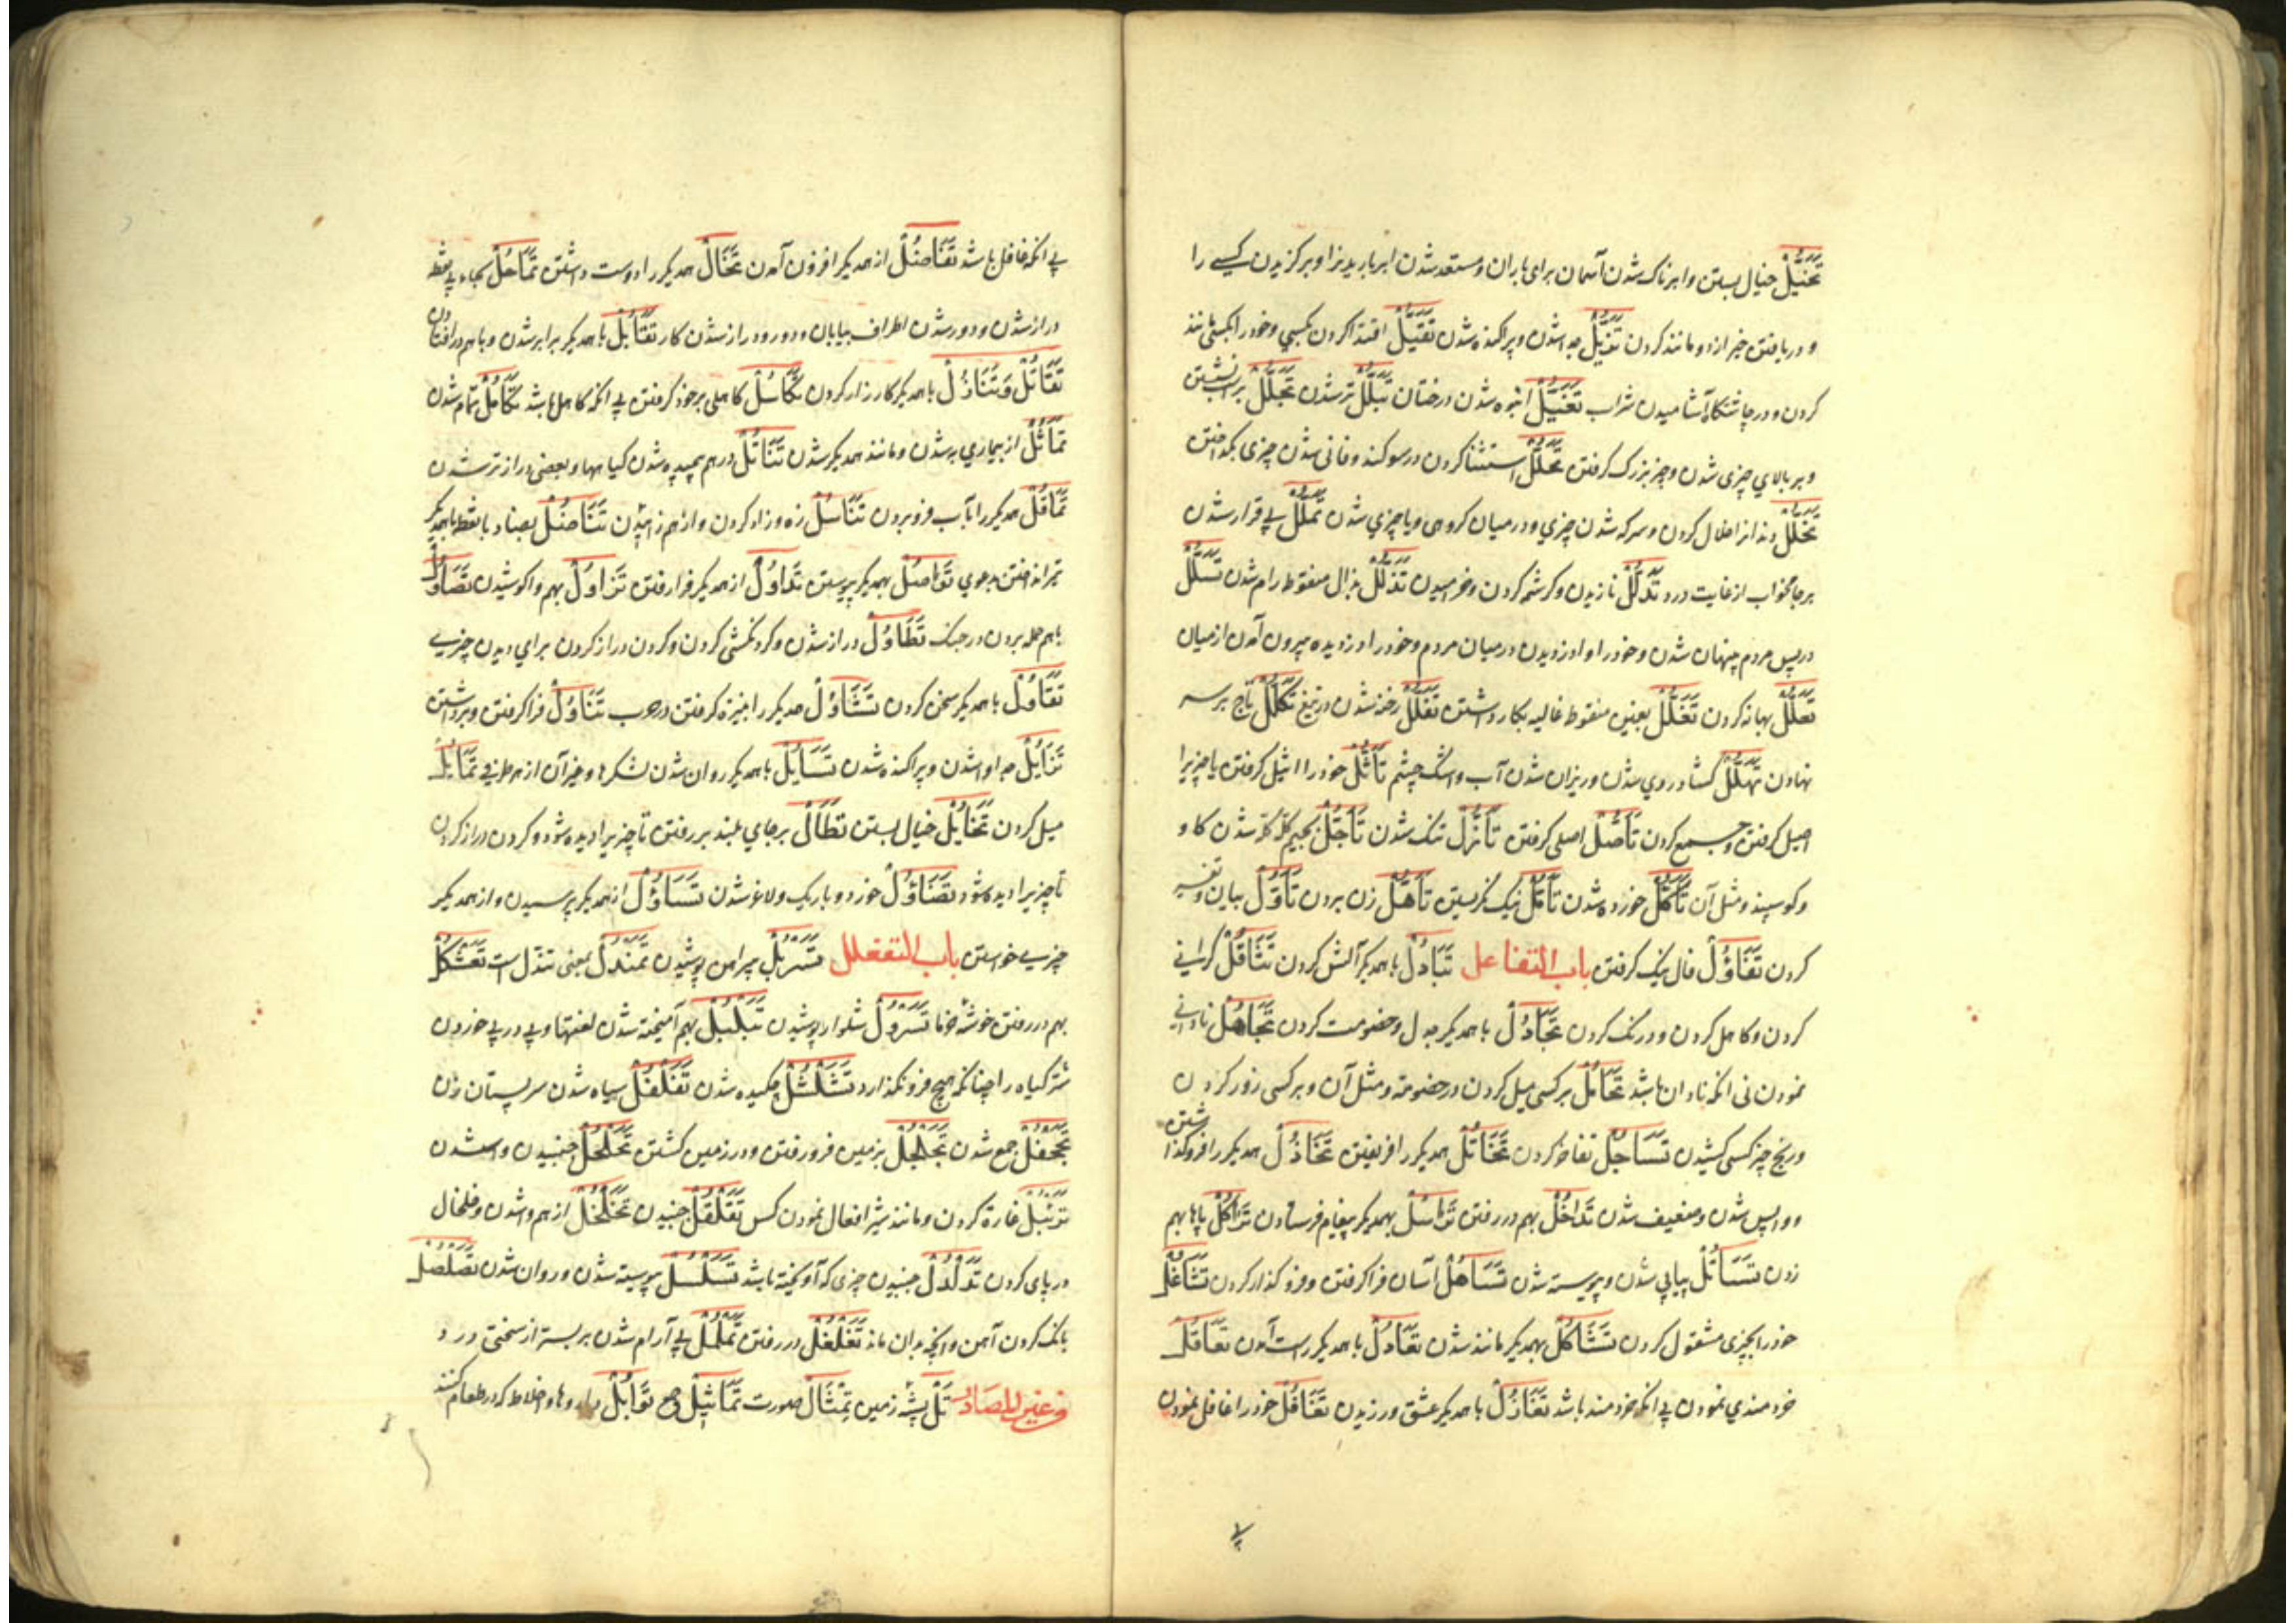 تَخَيُّلْ خیال بستن وابرناک شدن آسمان برای باران ومستعد شدن ابر باریدنرا وبرکزیدن کسے را
ودریافتن خیر از دو مانند کردن تَزَيُّلْ جدا شدن وپراکنده شدن تَقَيُّلْ اقتدا کردن بکسی وخودرا بکسی مانند
کردن ودر چاشتکاه آشامیدن شراب تَغَيُّلْ انبوه شدن درختان تَبَلُّلْ تر شدن تَجَلُّلْ بر اسب نشستن
وبر بالای چیزی شدن وچیز بزرک کرفتن تَحَلُّلْ استثنا کردن در سوکند وفانی شدن چیزی بکداختن
تَخَلُّلْ دندانرا خلال کردن وسرکه شدن چیزی ودر میان کروهی ویا چیزی شدن تَمَلُّلْ بی قرار شدن
بر جامه خواب از غایت درد تَدَلُّلْ نازیدن وکرشمه کردن وخرامیدن تَذَلُّلْ بذال منقوط رام شدن تَسَلُّلْ
در پس مردم پنهان شدن وخودرا وا دزدیدن در میان مردم وخودرا دزدیده بیرون آمدن از میان
تَعَلُّلْ بهانه کردن تَغَلُّلْ بغین منقوط غالیه بکار داشتن تَفَلُّلْ رخنه شدن در تیغ تَكَلُّلْ تاج بر سر
نهادن تَهَلُّلْ کشاده روی شدن وریزان شدن آب واشک چشم تَأَثُّلْ خودرا اثیل کرفتن یا چیزیرا
اصل کرفتن وجمع کردن تَأَصُّلْ اصلی کرفتن تَأَزُّلْ تنک شدن تَأَجُّلْ بجیم کله کله شدن کاو
وکوسپند ومثل آن تَأَكُّلْ خورده شدن تَأَمُّلْ نیک نکریستن تَأَهُّلْ زن بردن تَأَوُّلْ بیان وتفسیر
کردن تَفَاؤُلْ فال نیک کرفتن باب التفاعل تَبَادُلْ با همدیکر آلش کردن تَثَاقُلْ کرانی
کردن وکاهلی کردن ودرنک کردن تَجَادُلْ با همدیکر جدل وخصومت کردن تَجَاهُلْ نادانی
نمودن نی انکه نادان باشد تَحَامُلْ بر کسی میل کردن در خصومة ومثل آن وبر کسی زور کردن
ورنج چیز کسی کشیدن تَسَاجُلْ تفاخر کردن تَخَاتُلْ همدیکررا فریفتن تَخَاذُلْ همدیکررا فروکذاشتن
وواپس شدن وضعیف شدن تَدَاخُلْ بهم در رفتن تَرَاسُلْ بهمدیکر پیغام فرستادن تَرَاكُلْ پاها بهم
زدن تَسَاتُلْ پیاپی شدن وپیوسته شدن تَسَاهُلْ آسان فرا کرفتن وفروکذار کردن تَشَاغُلْ
خودرا بچیزی مشغول کردن تَشَاكُلْ بهمدیکر مانند شدن تَعَادُلْ با همدیکر راست آمدن تَعَاقُلْ
خردمندی نمودن بی انکه خردمند باشد تَغَازُلْ با همدیکر عشق ورزیدن تَغَافُلْ خودرا غافل نمودن
بی انکه غافل باشد تَفَاضُلْ از همدیکر افزون آمدن تَخَالْ همدیکررا دوست داشتن تَمَاحُلْ بحاء بی نقطه
دراز شدن ودور شدن اطراف بیابان ودور ودراز شدن کار تَقَابُلْ با همدیکر برابر شدن وباهم در افتادن
تَقَاتُلْ وَتَنَازُلْ با همدیکر کارزار کردن تَكَاسُلْ کاهلی بر خود کرفتن بی انکه کاهل باشد تَكَامُلْ تمام شدن
تَمَاثُلْ از بیماری به شدن ومانند همدیکر شدن تَنَاتُلْ درهم پیچیده شدن کیاهها وبعضی دراز تر شدن
تَمَاقُلْ همدیکررا بآب فرو بردن تَنَاسُلْ زه وزاد کردن واز هم زاییدن تَنَاضُلْ بضاد با نقطه با همدیکر
تیر انداختن بدعوی تَوَاصُلْ بهمدیکر پیوستن تَدَاوُلْ از همدیکر فرا رفتن تَزَاوُلْ بهم واکوشیدن تَصَاوُلْ
باهم حمله بردن در جنک تَطَاوُلْ دراز شدن وکردنکشی کردن وکردن دراز کردن برای دیدن چیزی
تَقَاوُلْ با همدیکر سخن کردن تَشَاوُلْ همدیکررا بنیزه کرفتن در حرب تَنَاوُلْ فرا کرفتن وبرداشتن
تَزَايُلْ جدا شدن وپراکنده شدن تَسَايُلْ با همدیکر روان شدن لشکرها وغیر آن از هر طرفی تَمَايُلْ
میل کردن تَخَايُلْ خیال بستن تَطَالْ بر جای بلند بر رفتن تا چیزیرا دیده شود وکردن دراز کردن
تا چیزیرا دیده شود تَضَاؤُلْ خورد وباریک ولاغر شدن تَسَاؤُلْ از همدیکر پرسیدن واز همدیکر
چیزی خواستن باب التفعلل تَسَرْبُلْ پیراهن پوشیدن تَمَنْدُلْ بمعنی تندل است تَعَثْكُلْ
بهم در رفتن خوشه خرما تَسَرْوُلْ شلوار پوشیدن تَبَلْبُلْ بهم آمیخته شدن لغتها وپی در پی خوردن
شتر کیاه را چنانکه هیچ فرو نکذارد تَشَلْشُلْ چکیده شدن تَفَلْفُلْ سیاه شدن سر پستان زن
تَجَحْفُلْ جمع شدن تَجَلْجُلْ بزمین فرو رفتن ودر زمین کشتن تَحَلْحُلْ جنبیدن وا شدن
تَرَئْبُلْ غارة کردن ومانند شیر افعال نمودن کس تَقَلْقُلْ جنبیدن تَخَلْخُلْ از هم وا شدن وخلخال
در پای کردن تَدَلْدُلْ جنبیدن چیزی که آویخته باشد تَسَلْسُلْ پیوسته شدن وروان شدن تَصَلْصُلْ
بانک کردن آهن وانچه بدان ماند تَغَلْغُلْ در رفتن تَمَلْمُلْ بی آرام شدن بر بستر از سختی درد
ومن غیر المصادر تَلّْ پشته زمین تِمْثَالْ صورت تَمَاثِيلْ جمع تَوَابُلْ داروها واخلاط که در طعام کنند